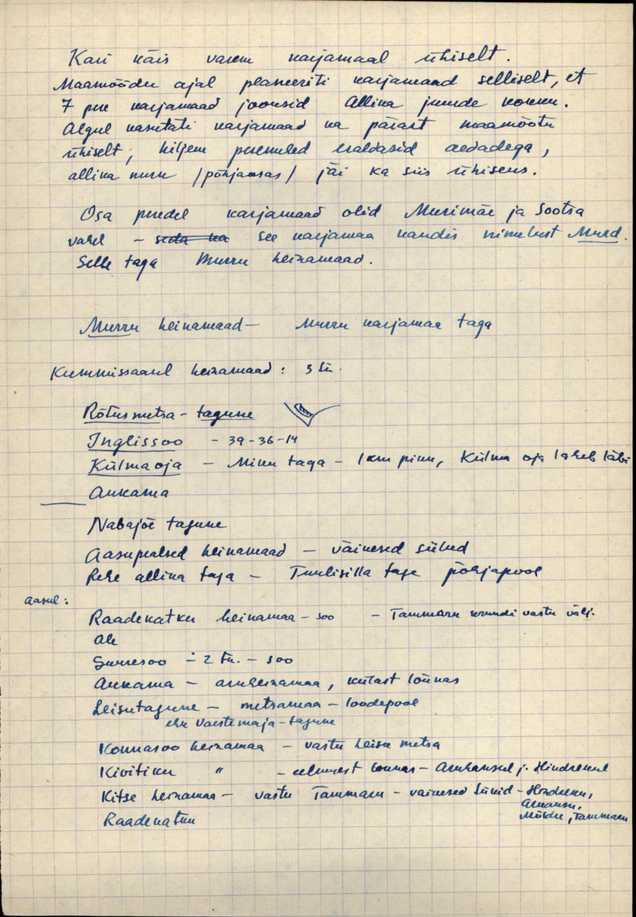 Kari käis varem karjamaal ühiselt.
Maamõõdu ajal planeeriti karjamaad selliselt, et
7 pere karjamaad jooksid Allina juurde kokku.
Algul kasutati karjamaad ka pärast maamõõtu
ühiselt, hiljem peremehed eraldasid aedadega,
allina nurk /põhjaosas/ jäi ka siis ühiseks.
Osa peredel karjamaad olid Murimäe ja Sootsa
vahel – seda ka see karjamaa kandis nimetust Murd.
Selle taga Murru heinamaad.
Murru heinamaad – Murru karjamaa taga
Kummissaarel heinamaad : 3 tü.
Rõtusmetsa-tagune
Inglissoo – 39-36-14
Külmaoja – Minu taga – 1 km pikk, Külma oja läheb läbi
Ankama
Nabajõe tagune
Aasupealsed heinamaad – väikesed siilud
Rehe allina taga – Tuulisilla taga põhjapool
Aasul :
Raadekatku heinamaa – soo – Tammaru soundi vastu välj.
Ale
Suuresoo – 2 tü. – soo
Ankama – aruheinamaa, külast lõunas
Leisutagune – metsamaa – loodepool
ehk vaestemaja-tagune
Konnasoo heinamaa – vastu Leisu metsa
Kivitiku " – eelmisest lõunas – Aruhansul j. Hindrekul
Kitse heinamaa – vastu Tammaru – väikesed siilud – Hindreku,
Aruhansu,
Möldre, Tammaru
Raadekatku